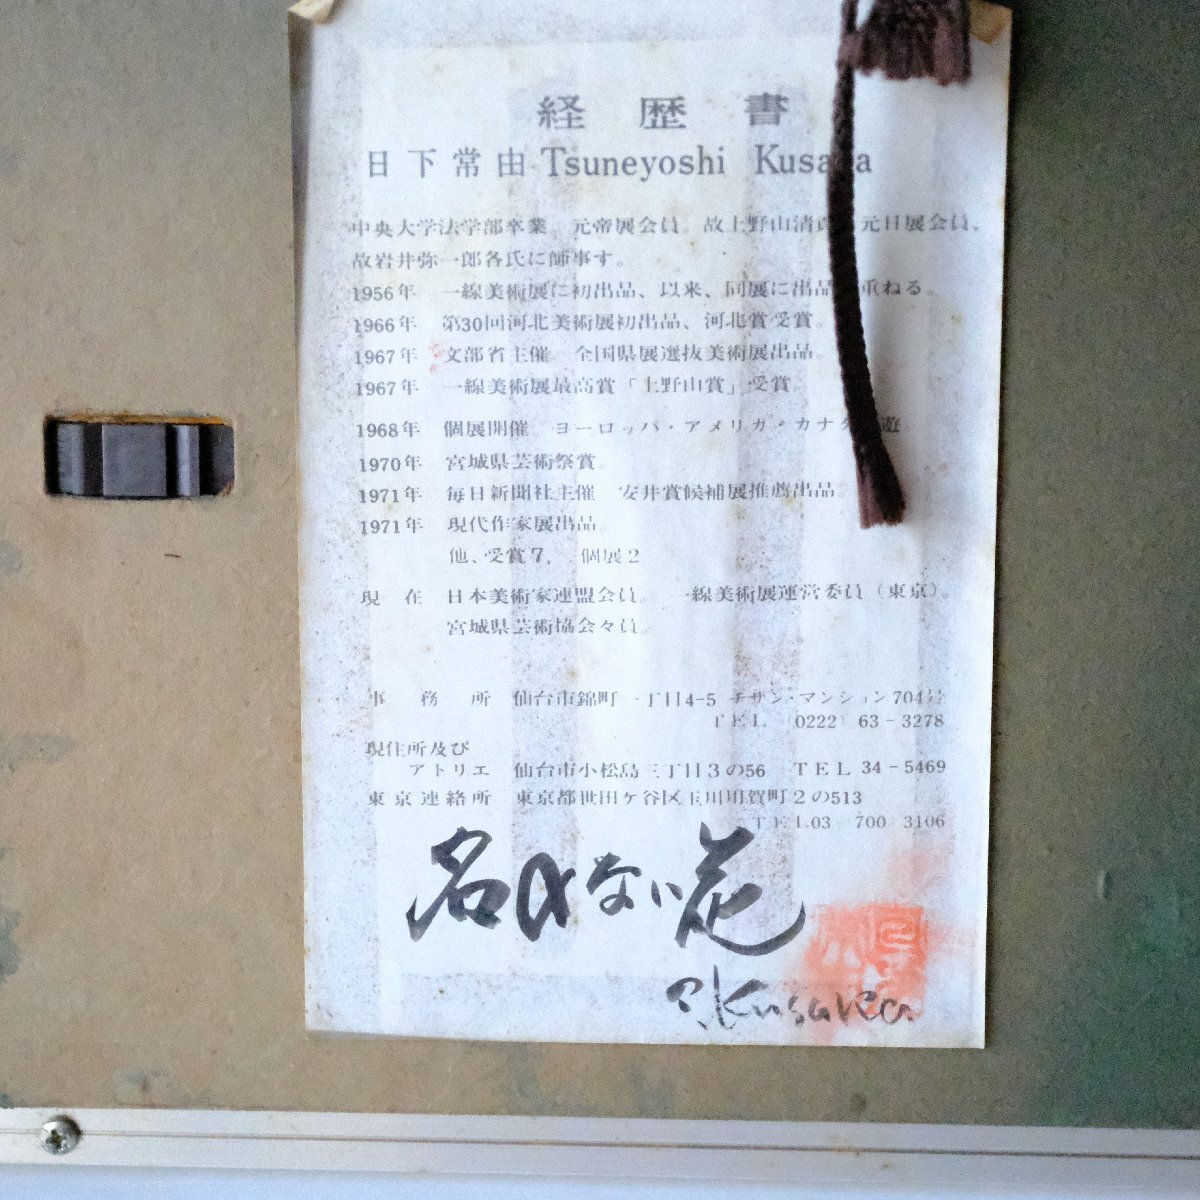 経歴書
日下常由 Tsuneyoshi Kusaka
中央大学法学部卒業。元帝展会員。故上野山清貢 元日展会員、
故岩井弥一郎各氏に師事す。
1956年 一線美術展に初出品、以来、同展に出品 重ねる。
1966年 第30回河北美術展初出品、河北賞受賞。
1967年 文部省主催 全国県展選抜美術展出品。
1967年 一線美術展最高賞「上野山賞」受賞。
1968年 個展開催 ヨーロッパ・アメリカ・カナダ 遊
1970年 宮城県芸術祭賞。
1971年 毎日新聞社主催 安井賞候補展推薦出品
1971年 現代作家展出品。
他、受賞7, 個展2
現在 日本美術家連盟会員。 一線美術展運営委員（東京）。
宮城県芸術協会々員。
事務所 仙台市錦町一丁目4-5 チサン・マンション704号
TEL (0222) 63-3278
現住所及び
アトリエ 仙台市小松島三丁目3の56 TEL 34-5469
東京連絡所 東京都世田ケ谷区玉川用賀町2の513
TEL03 700 3106
名もない花
T.Kusaka